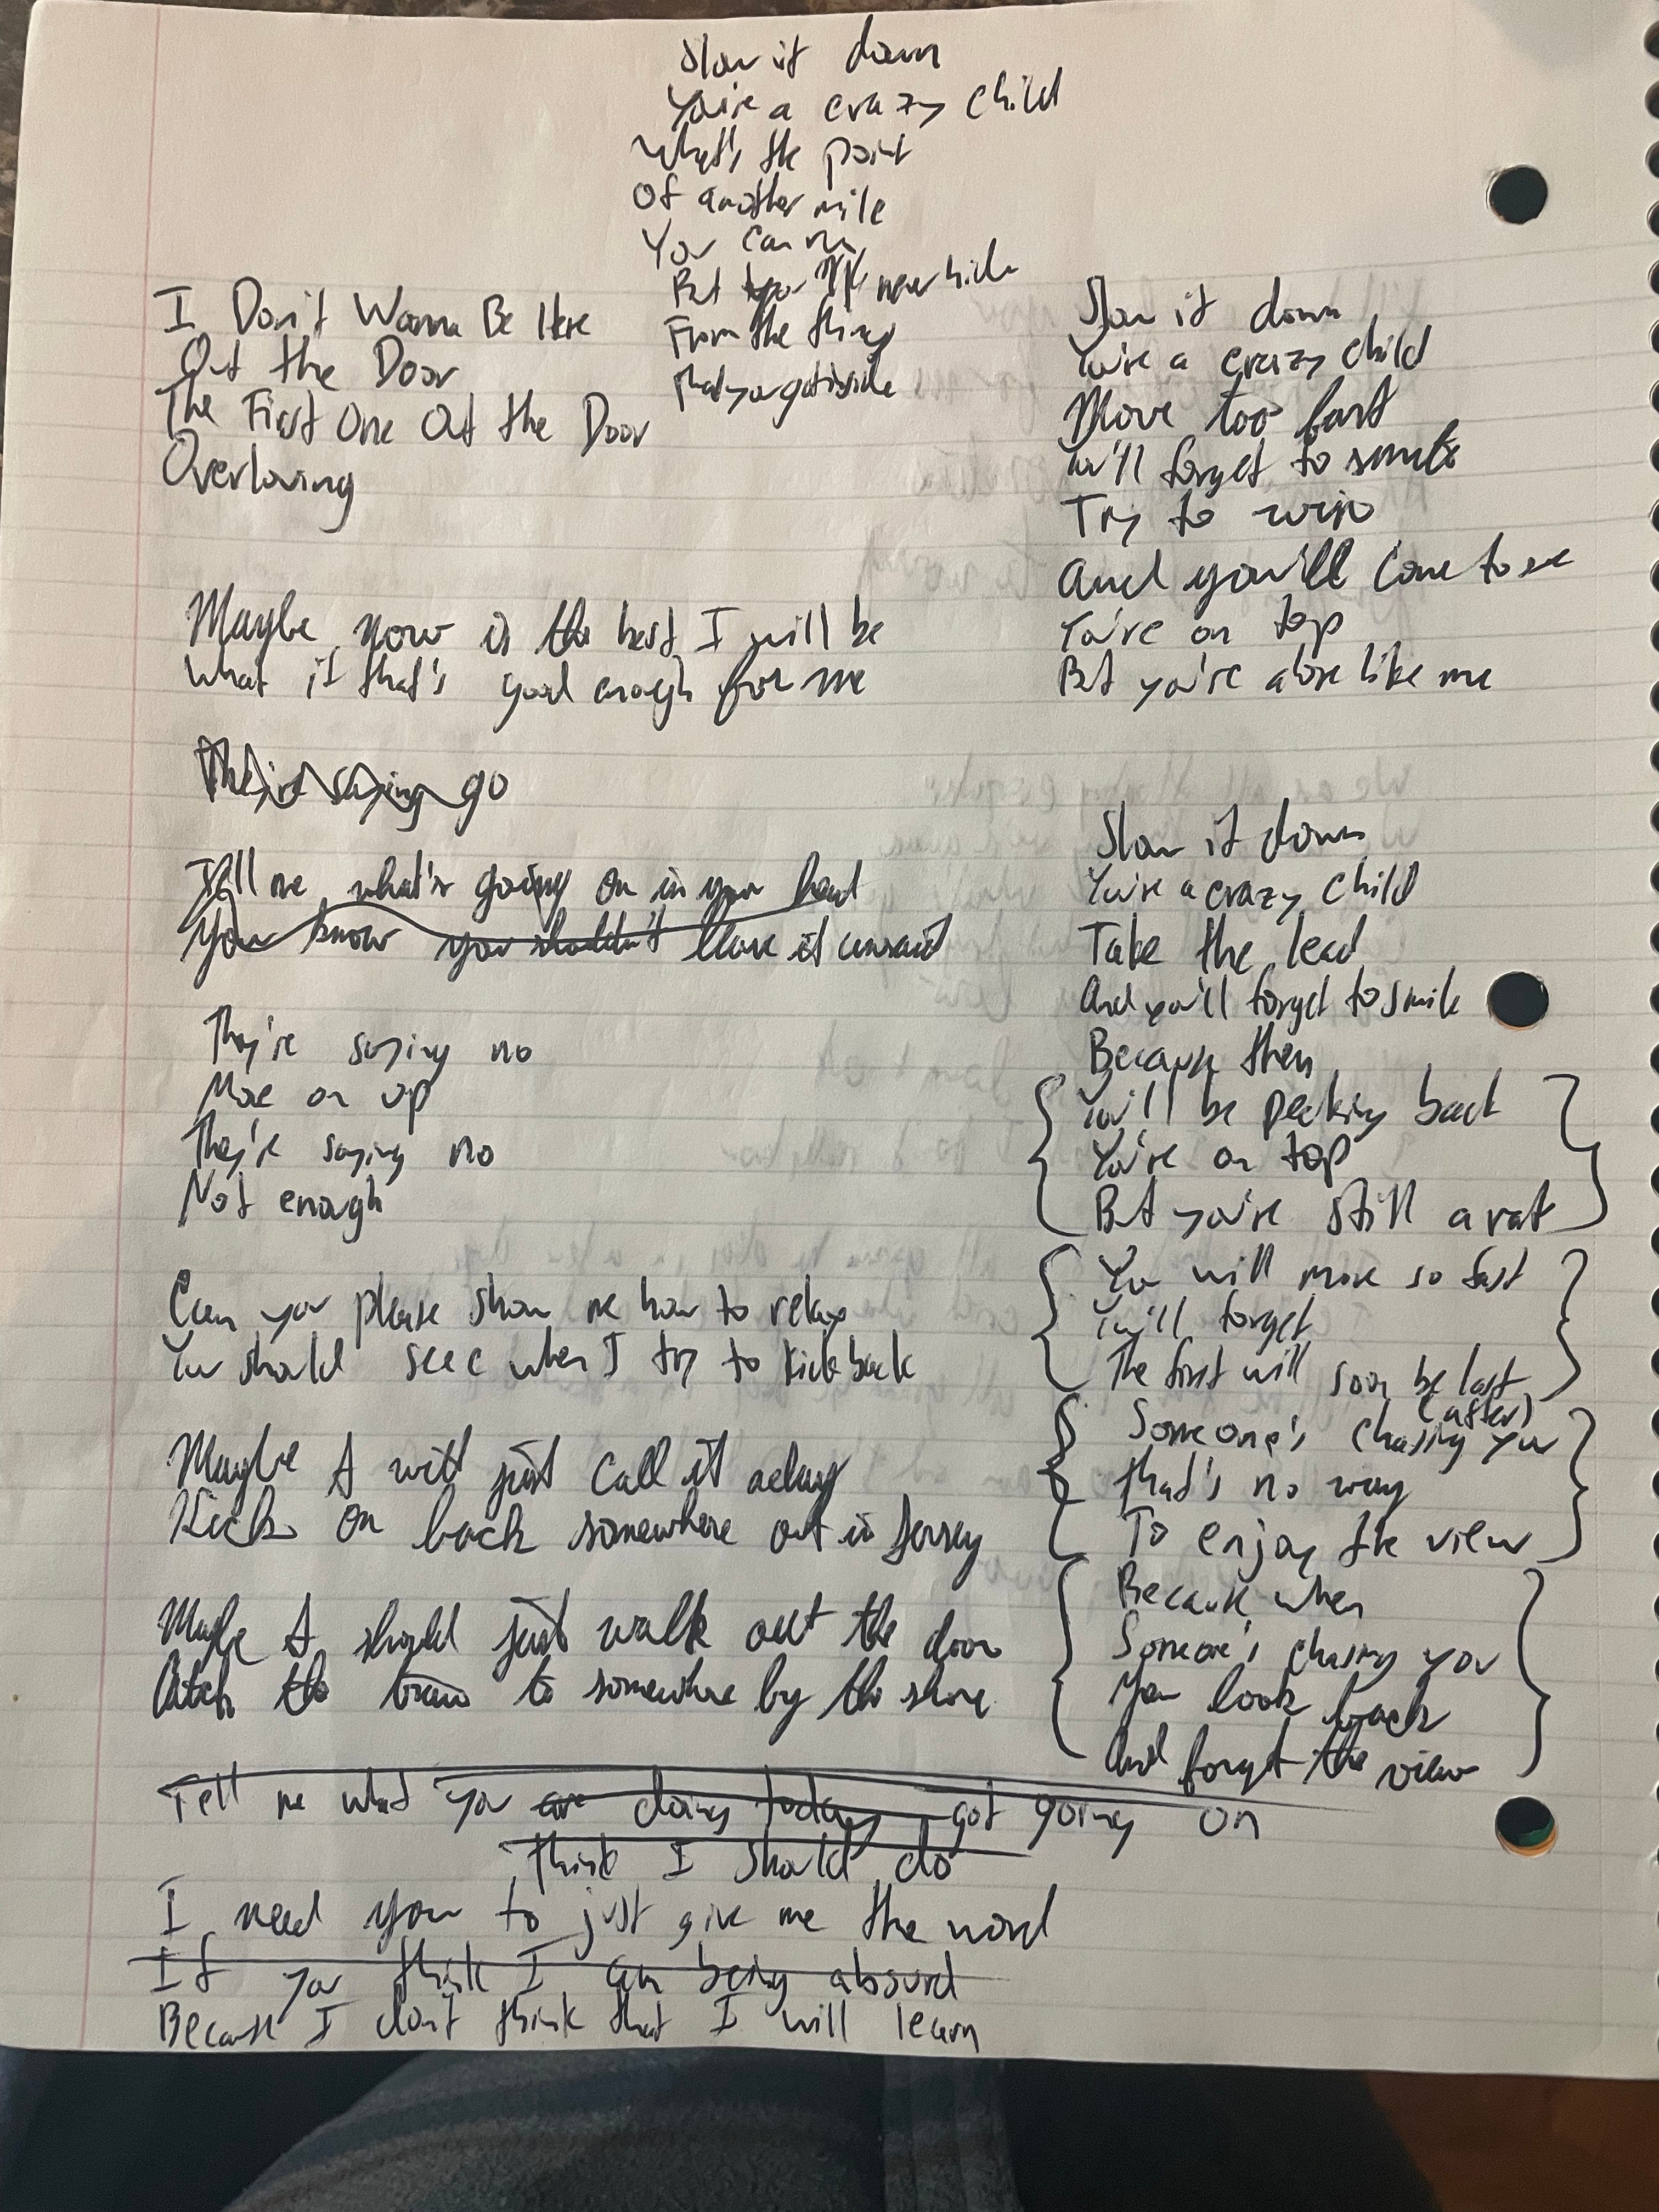 Slow it down
You're a crazy child
What's the point
Of another mile
You can run
But you'll never hide
From the thing
That you got inside
I Don't Wanna Be Here
Out the Door
The First One Out the Door
Overloving
Maybe now is the best I will be
What if that's good enough for me
They're saying go
Tell me what's going on in your head
You know you shouldn't leave it unsaid
They're saying no
Move on up
They're saying no
Not enough
Can you please show me how to relax
You should see when I try to kick back
Maybe I will just call it a day
Kick on back somewhere out in Jersey
Maybe I should just walk out the door
Catch the train to somewhere by the shore
Tell me what you are doing today got going on
think I should do
I need you to just give me the word
If you think I am being absurd
Because I don't think that I will learn
Slow it down
You're a crazy child
Move too fast
You'll forget to smile
Try to win
And you'll come to see
You're on top
But you're alone like me
Slow it down
You're a crazy child
Take the lead
And you'll forget to smile
Because then
You'll be peeking back
You're on top
But you're still a rat
You will move so fast
You'll forget
The first will soon be last
(after)
Someone's chasing you
that's no way
To enjoy the view
Because when
Someone's chasing you
You look back
And forget the view